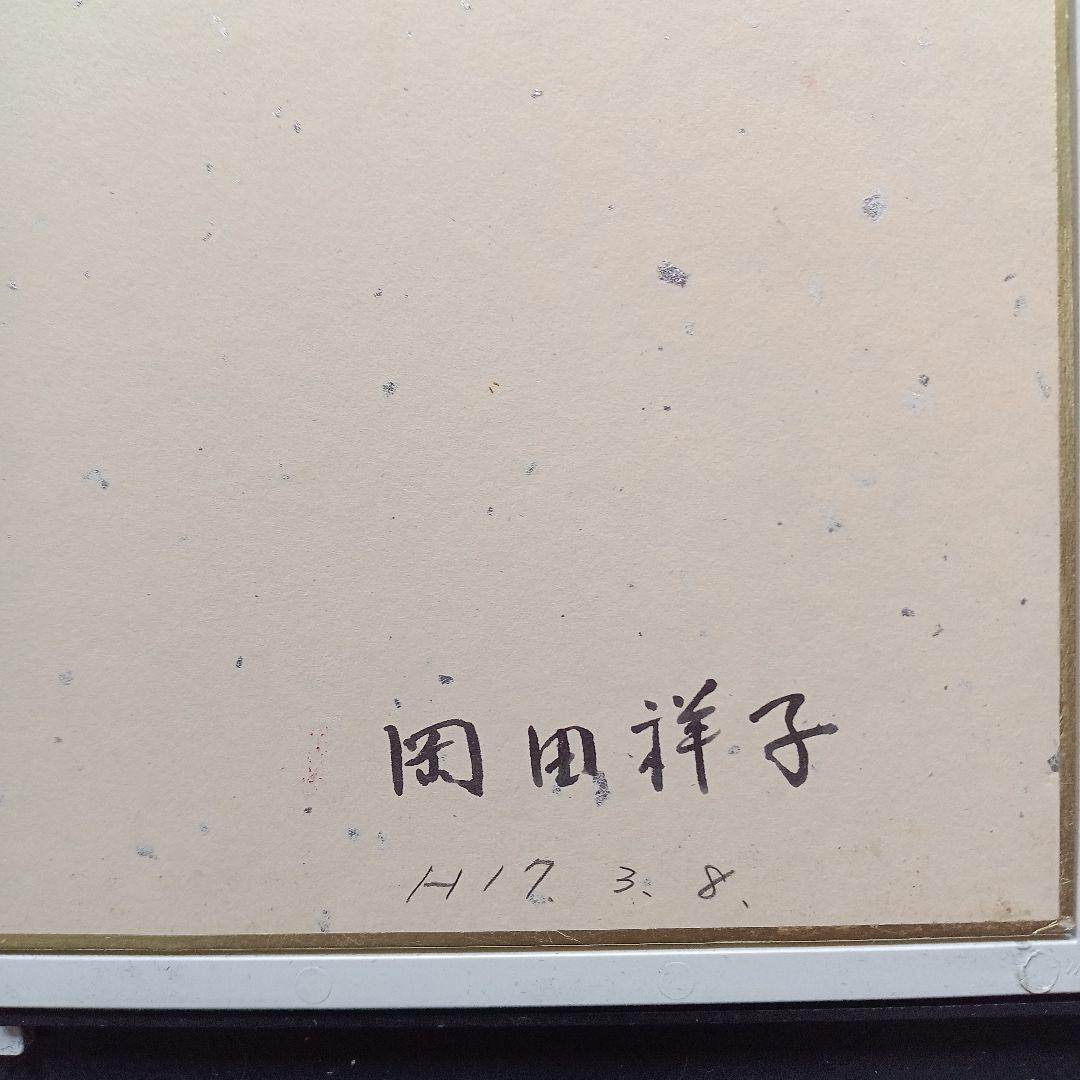 岡田祥子
H17. 3. 8.